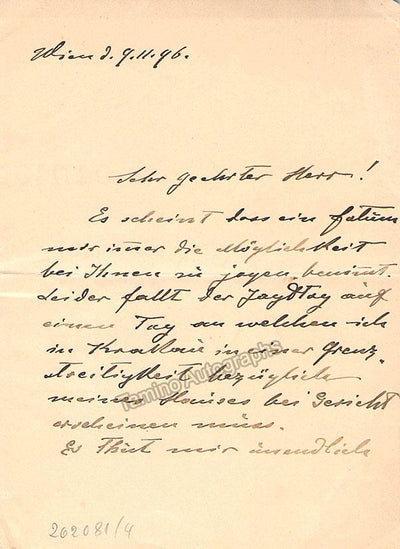 Wien d. 9.11.96.
Sehr geehrter Herr!
Es scheint dass ein fatum
mir immer die Möglichkeit
bei Ihnen zu jagen benimt.
Leider fallt der Jagdtag auf
einen Tag an welchen ich
in Krakau in einer Grenz
streitigkeit bezüglich
meines Hauses bei Gericht
erscheinen muss.
Es Thut mir unendlich
Tamino Autographs
202081/4